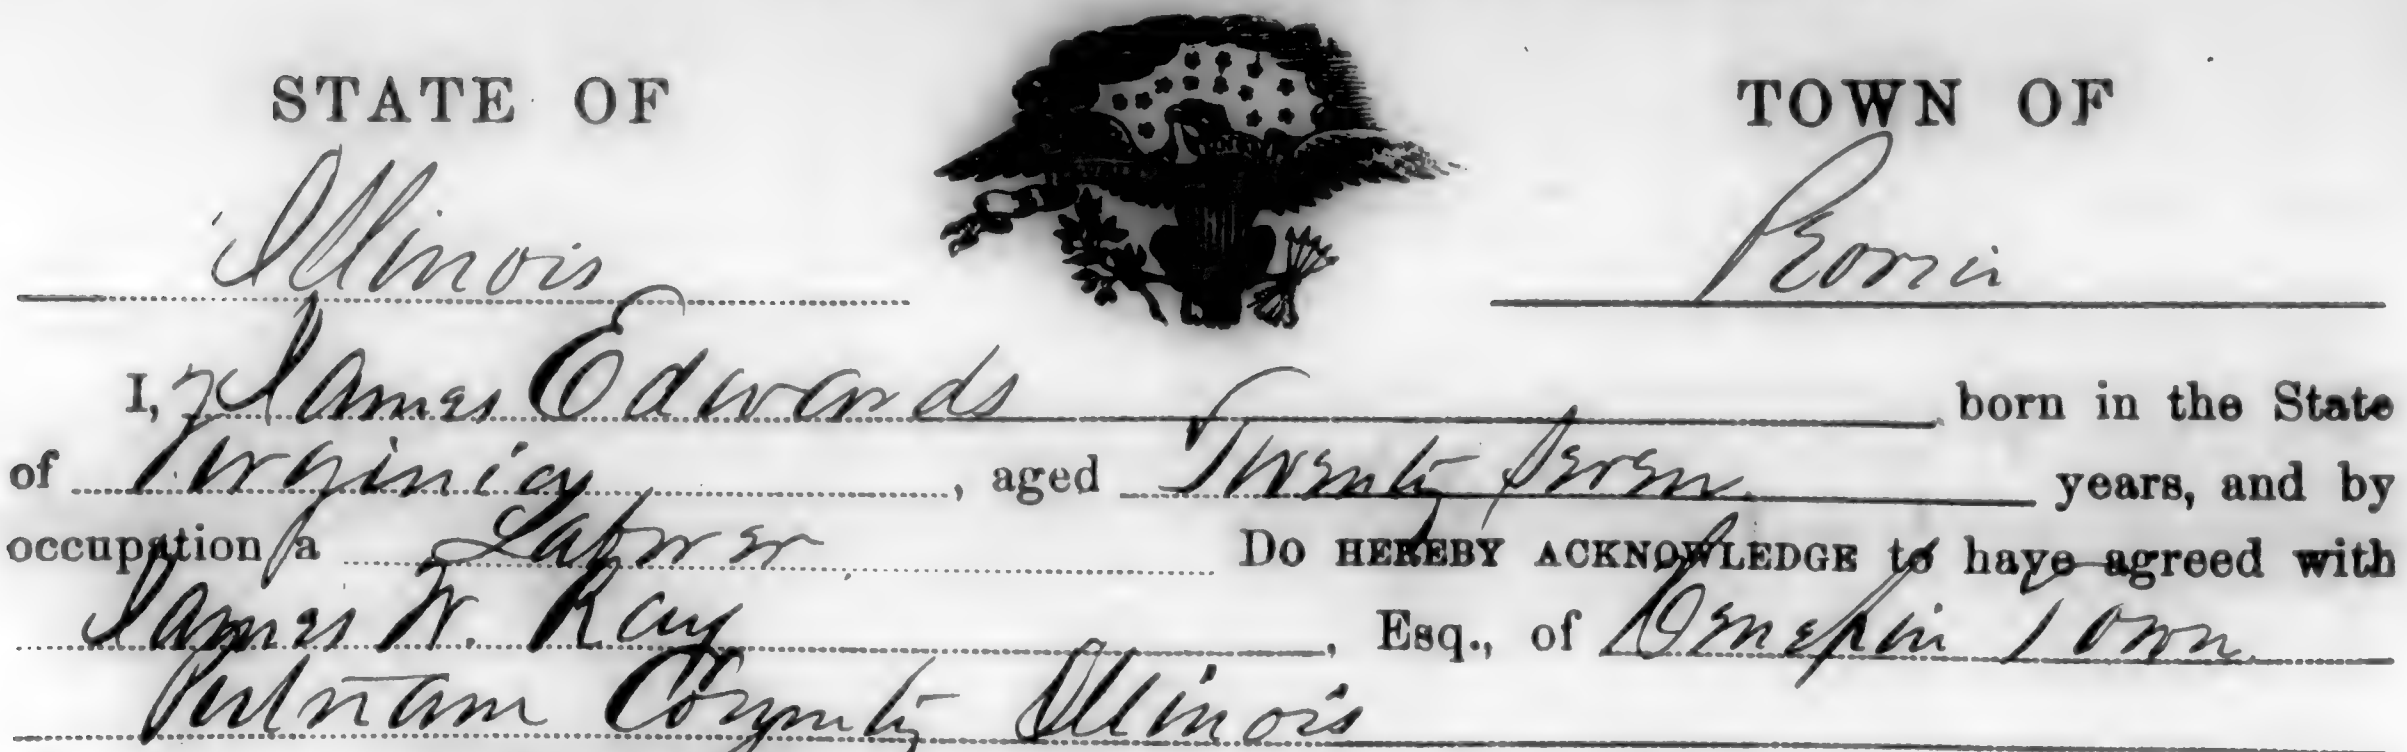 STATE OF TOWN OF
Illinois Peoria
I, James Edwards born in the State
of Virginia, aged Twenty Seven years, and by
occupation a Laborer Do HEREBY ACKNOWLEDGE to have agreed with
James W. Ray, Esq., of Henepin Town
Putnam County Illinois